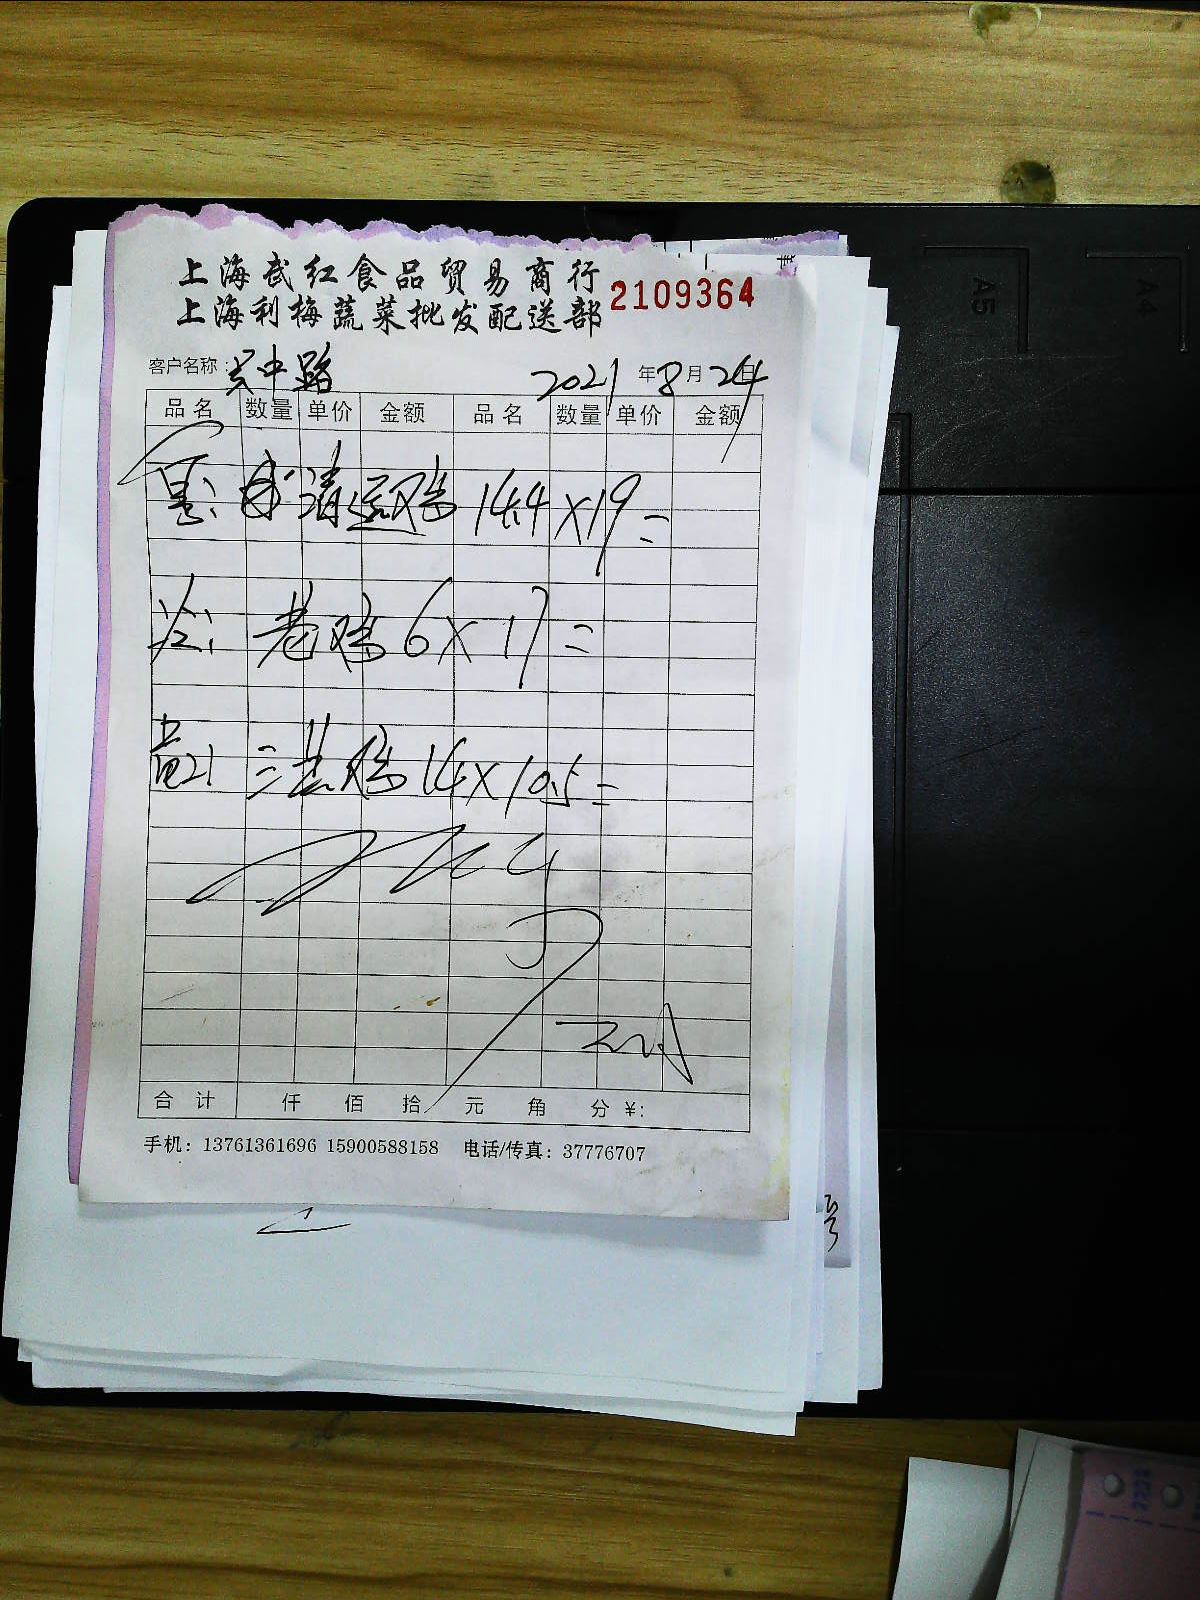 上海武红食品贸易商行
上海利梅蔬菜批发配送部
2109364
客户名称: 吴中路
2021年8月24日
品名 数量 单价 金额 品名 数量 单价 金额
清远鸡 14.4×19=
冷: 老鸡 6×17=
三黄鸡 14×10.5=
合计 仟 佰 拾 元 角 分 ¥:
手机: 13761361696 15900588158 电话/传真: 37776707
A5
A4